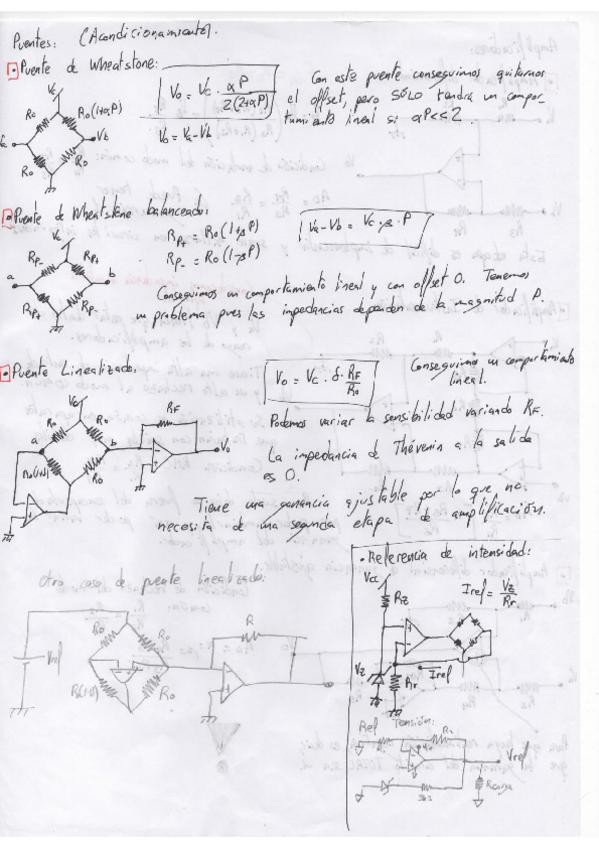 Puentes: (Acondicionamiento).
• Puente de Wheatstone:
Vo = Vc · αP / 2(2+αP)
Vo = Va - Vb
Con este puente conseguimos quitarnos
el offset, pero SÓLO tendrá un compor-
tamiento lineal si αP << 2
Vc
Ro
Ro(1+αP)
Vb
Ro
Ro
• Puente de Wheatstone balanceado:
RP+ = Ro(1+βP)
RP- = Ro(1-βP)
Va - Vb = Vc · β · P
Vc
RP-
RP+
a
b
RP+
RP-
Conseguimos un comportamiento lineal y con offset 0. Tenemos
un problema pues las impedancias dependen de la magnitud P.
• Puente Linealizado:
Vo = Vc · δ · RF / Ro
Conseguimos un comportamiento
lineal.
Vc
Ro
Ro
RF
a
b
Vo
Ro
Podemos variar la sensibilidad variando RF.
La impedancia de Thévenin a la salida
es 0.
Tiene una ganancia ajustable por lo que no
necesita de una segunda etapa de amplificación.
Otro caso de puente linealizado:
Ro
Ro
R
Vref
Ro
• Referencia de intensidad:
Vcc
Rz
Iref = Vz / Rr
Vz
Rr
Iref
Ref Tensión:
Vref
Rcarga